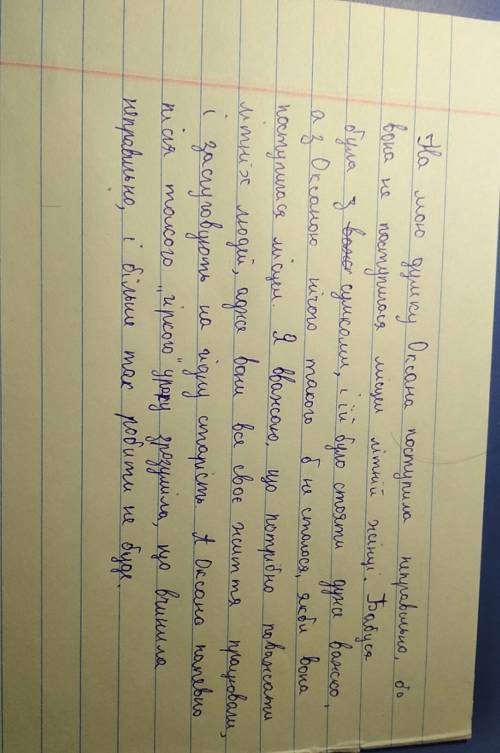 На мою думку Оксана поступила неправильно, бо
вона не поступилася місцем літній жінці. Бабуся
була з важк сумками, і їй було стояти дуже важко,
а з Оксаною нічого такого б не сталося, якби вона
поступилася місцем. Я вважаю, що потрібно поважати
літніх людей, адже вони все своє життя працювали,
і заслуговують на гідну старість. А Оксана напевно
після такого „гіркого" уроку зрозуміла, що вчинила
неправильно, і більше так робити не буде.